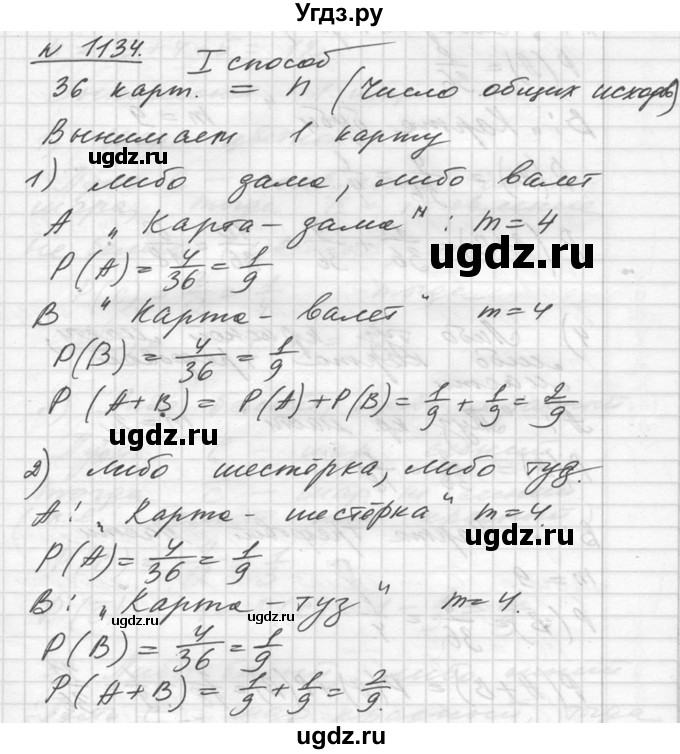 Угдз.ру
№ 1134.
I способ
36 карт. = n (число общих исходов)
Вынимает 1 карту
©gdz.ru
1) либо дама, либо валет
A „Карта - дама" : m = 4
©gdz.ru
P(A) = 4/36 = 1/9
B „Карта - валет" m = 4
P(B) = 4/36 = 1/9
P(A+B) = P(A) + P(B) = 1/9 + 1/9 = 2/9
©gdz.ru
2) либо шестёрка, либо туз.
A: „Карта - шестёрка" m = 4.
©gdz.ru
P(A) = 4/36 = 1/9
B: „Карта - туз" m = 4.
©gdz.ru
P(B) = 4/36 = 1/9
P(A+B) = 1/9 + 1/9 = 2/9.
©gdz.ru
Угдз.ру